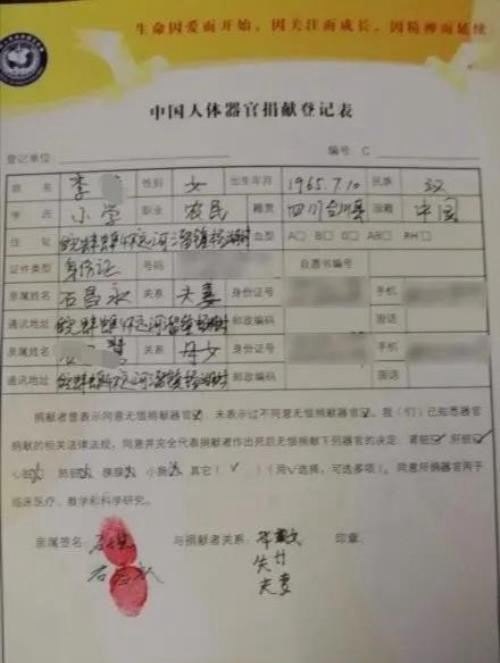 生命因爱而开始，因关注而成长，因精神而延续
中国人体器官捐献登记表
登记单位 编号 C
姓 名 李 性别 女 出生年月 1965.7.10 民族 汉
学 历 小学 职业 农民 籍贯 四川 国籍 中国
住 址 血型 A□ B□ O□ AB□ RH□
证件类型 身份证 号码 自愿书编号
亲属姓名 石昌永 关系 夫妻 身份证号 手机
通讯地址 邮政编码 固话
亲属姓名 关系 母女 身份证号 手机
通讯地址 邮政编码 固话
捐献者曾表示同意无偿捐献器官☑，未表示过不同意无偿捐献器官☑。我（们）已知悉器官
捐献的相关法律法规，同意并完全代表捐献者作出死后无偿捐献下列器官的决定：肾脏☑ 肝脏☑
心脏☑ 肺脏☑ 胰腺☑ 小肠☑ 其它（ √ ）（用√选择，可选多项）。同意所捐器官用于
临床医疗、教学和科学研究。
亲属签名： 与捐献者关系： 印章：
夫妻